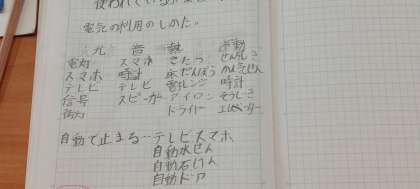 使われている
電気の利用のしかた。
光 音 熱 運動
電灯 スマホ こたつ せんぷうき
スマホ 時計 床だんぼう かん気せん
テレビ テレビ 電子レンジ 時計
信号 スピーカー アイロン そうじき
街灯 ドライヤー エレベーター
自動で止まる…テレビスマホ
自動水せん
自動石けん
自動ドア